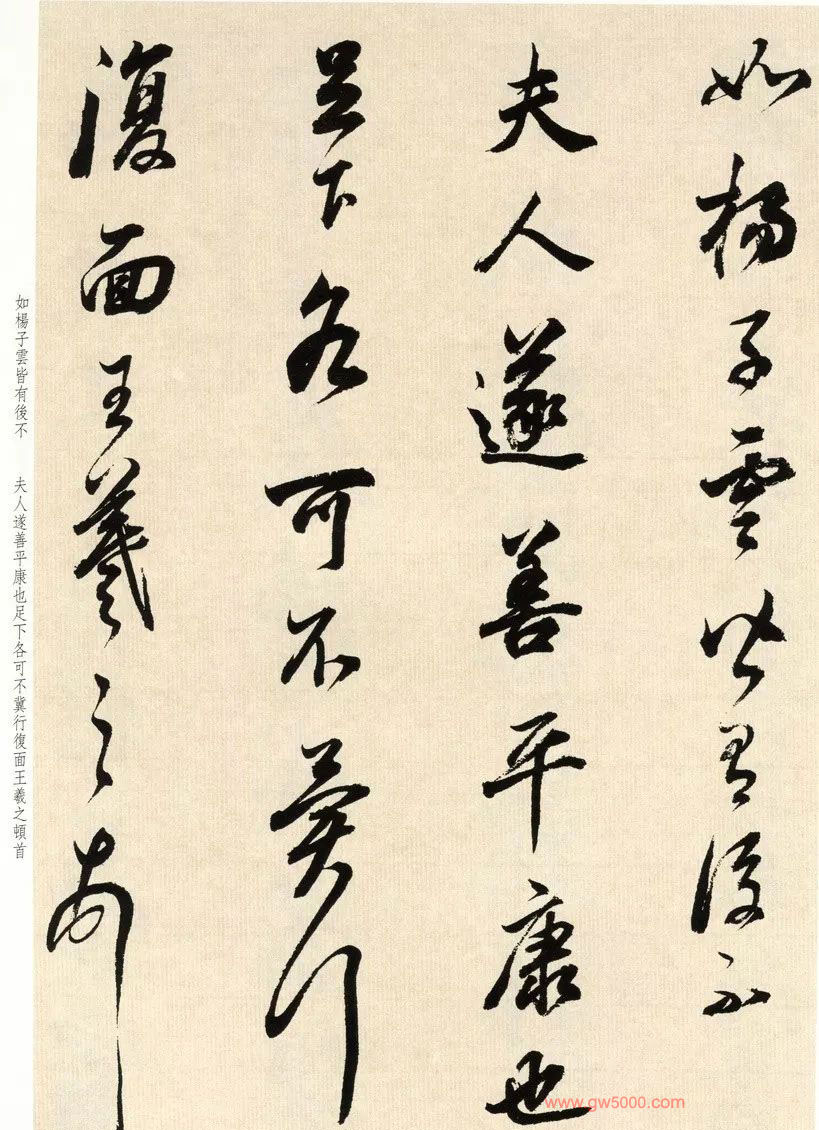 如楊子雲皆有後不
夫人遂善平康也
足下各可不冀行
復面王羲之頓首
如楊子雲皆有後不 夫人遂善平康也足下各可不冀行復面王羲之頓首
www.gw5000.com